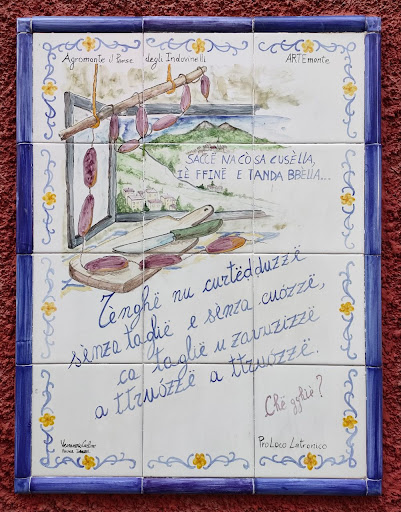 Agromonte il Paese degli Indovinelli ARTEmonte
SACCË NA CÒSA CUSÈLLA,
IÈ FFINË E TANDA BBÈLLA...
Tènghë nu curtëdduzzë
sènza taglië e sènza cuózzë,
ca taglië u zavuzizzë
a ttruózzë a ttruózzë.
Chë gghiè?
ProLoco Latronico